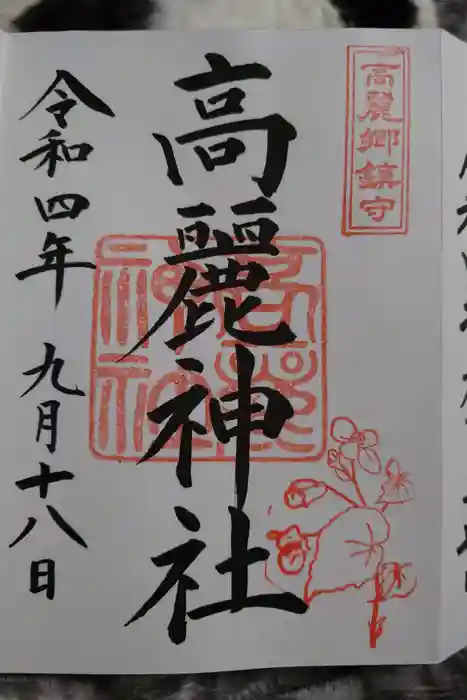 高麗郷鎮守
高麗神社
令和四年 九月十八日